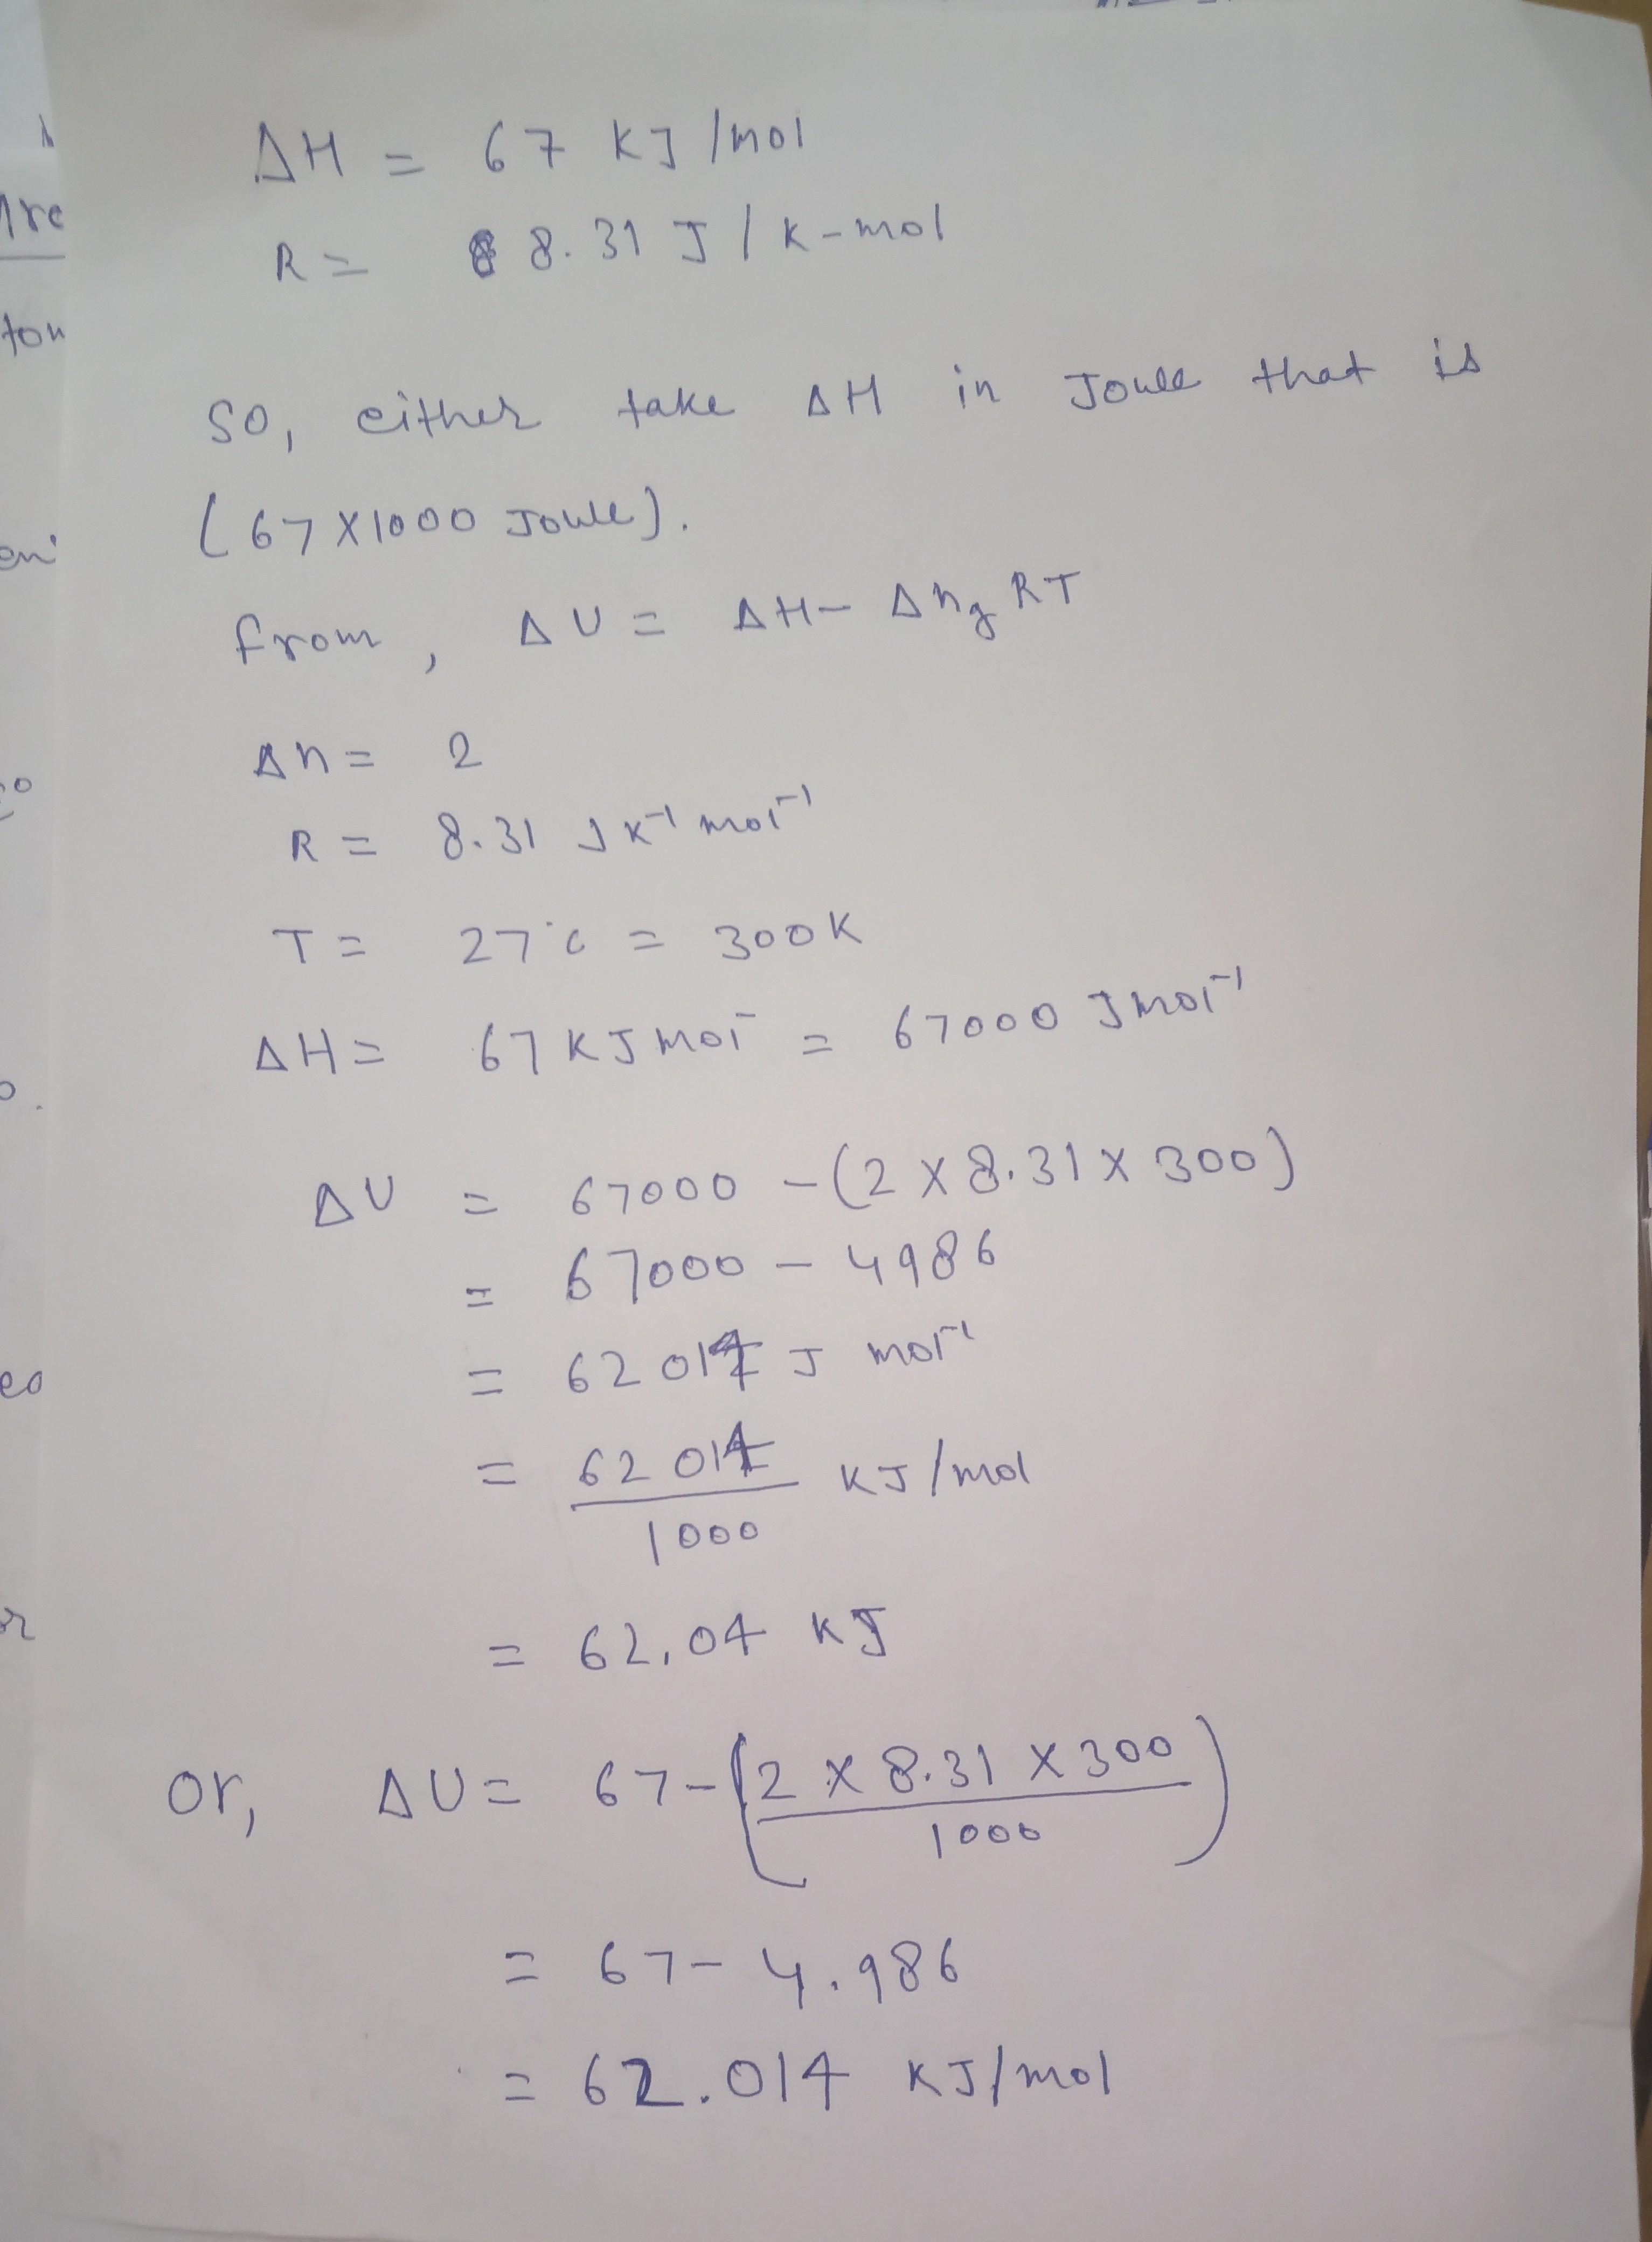 ΔH = 67 KJ/mol
R = 8.31 J/K-mol
are
ton
So, either take ΔH in Joule that is
(67X1000 Joule).
from, ΔU = ΔH- Δng RT
Δn = 2
R = 8.31 JK⁻¹ mol⁻¹
T = 27°C = 300K
ΔH = 67 KJ mol⁻ = 67000 Jmol⁻¹
ΔU = 67000 -(2 X 8.31 X 300)
= 67000 - 4986
= 62014 J mol⁻¹
= 62014/1000 KJ/mol
= 62.04 KJ
or, ΔU = 67-(2 X 8.31 X 300/1000)
= 67-4.986
= 62.014 KJ/mol